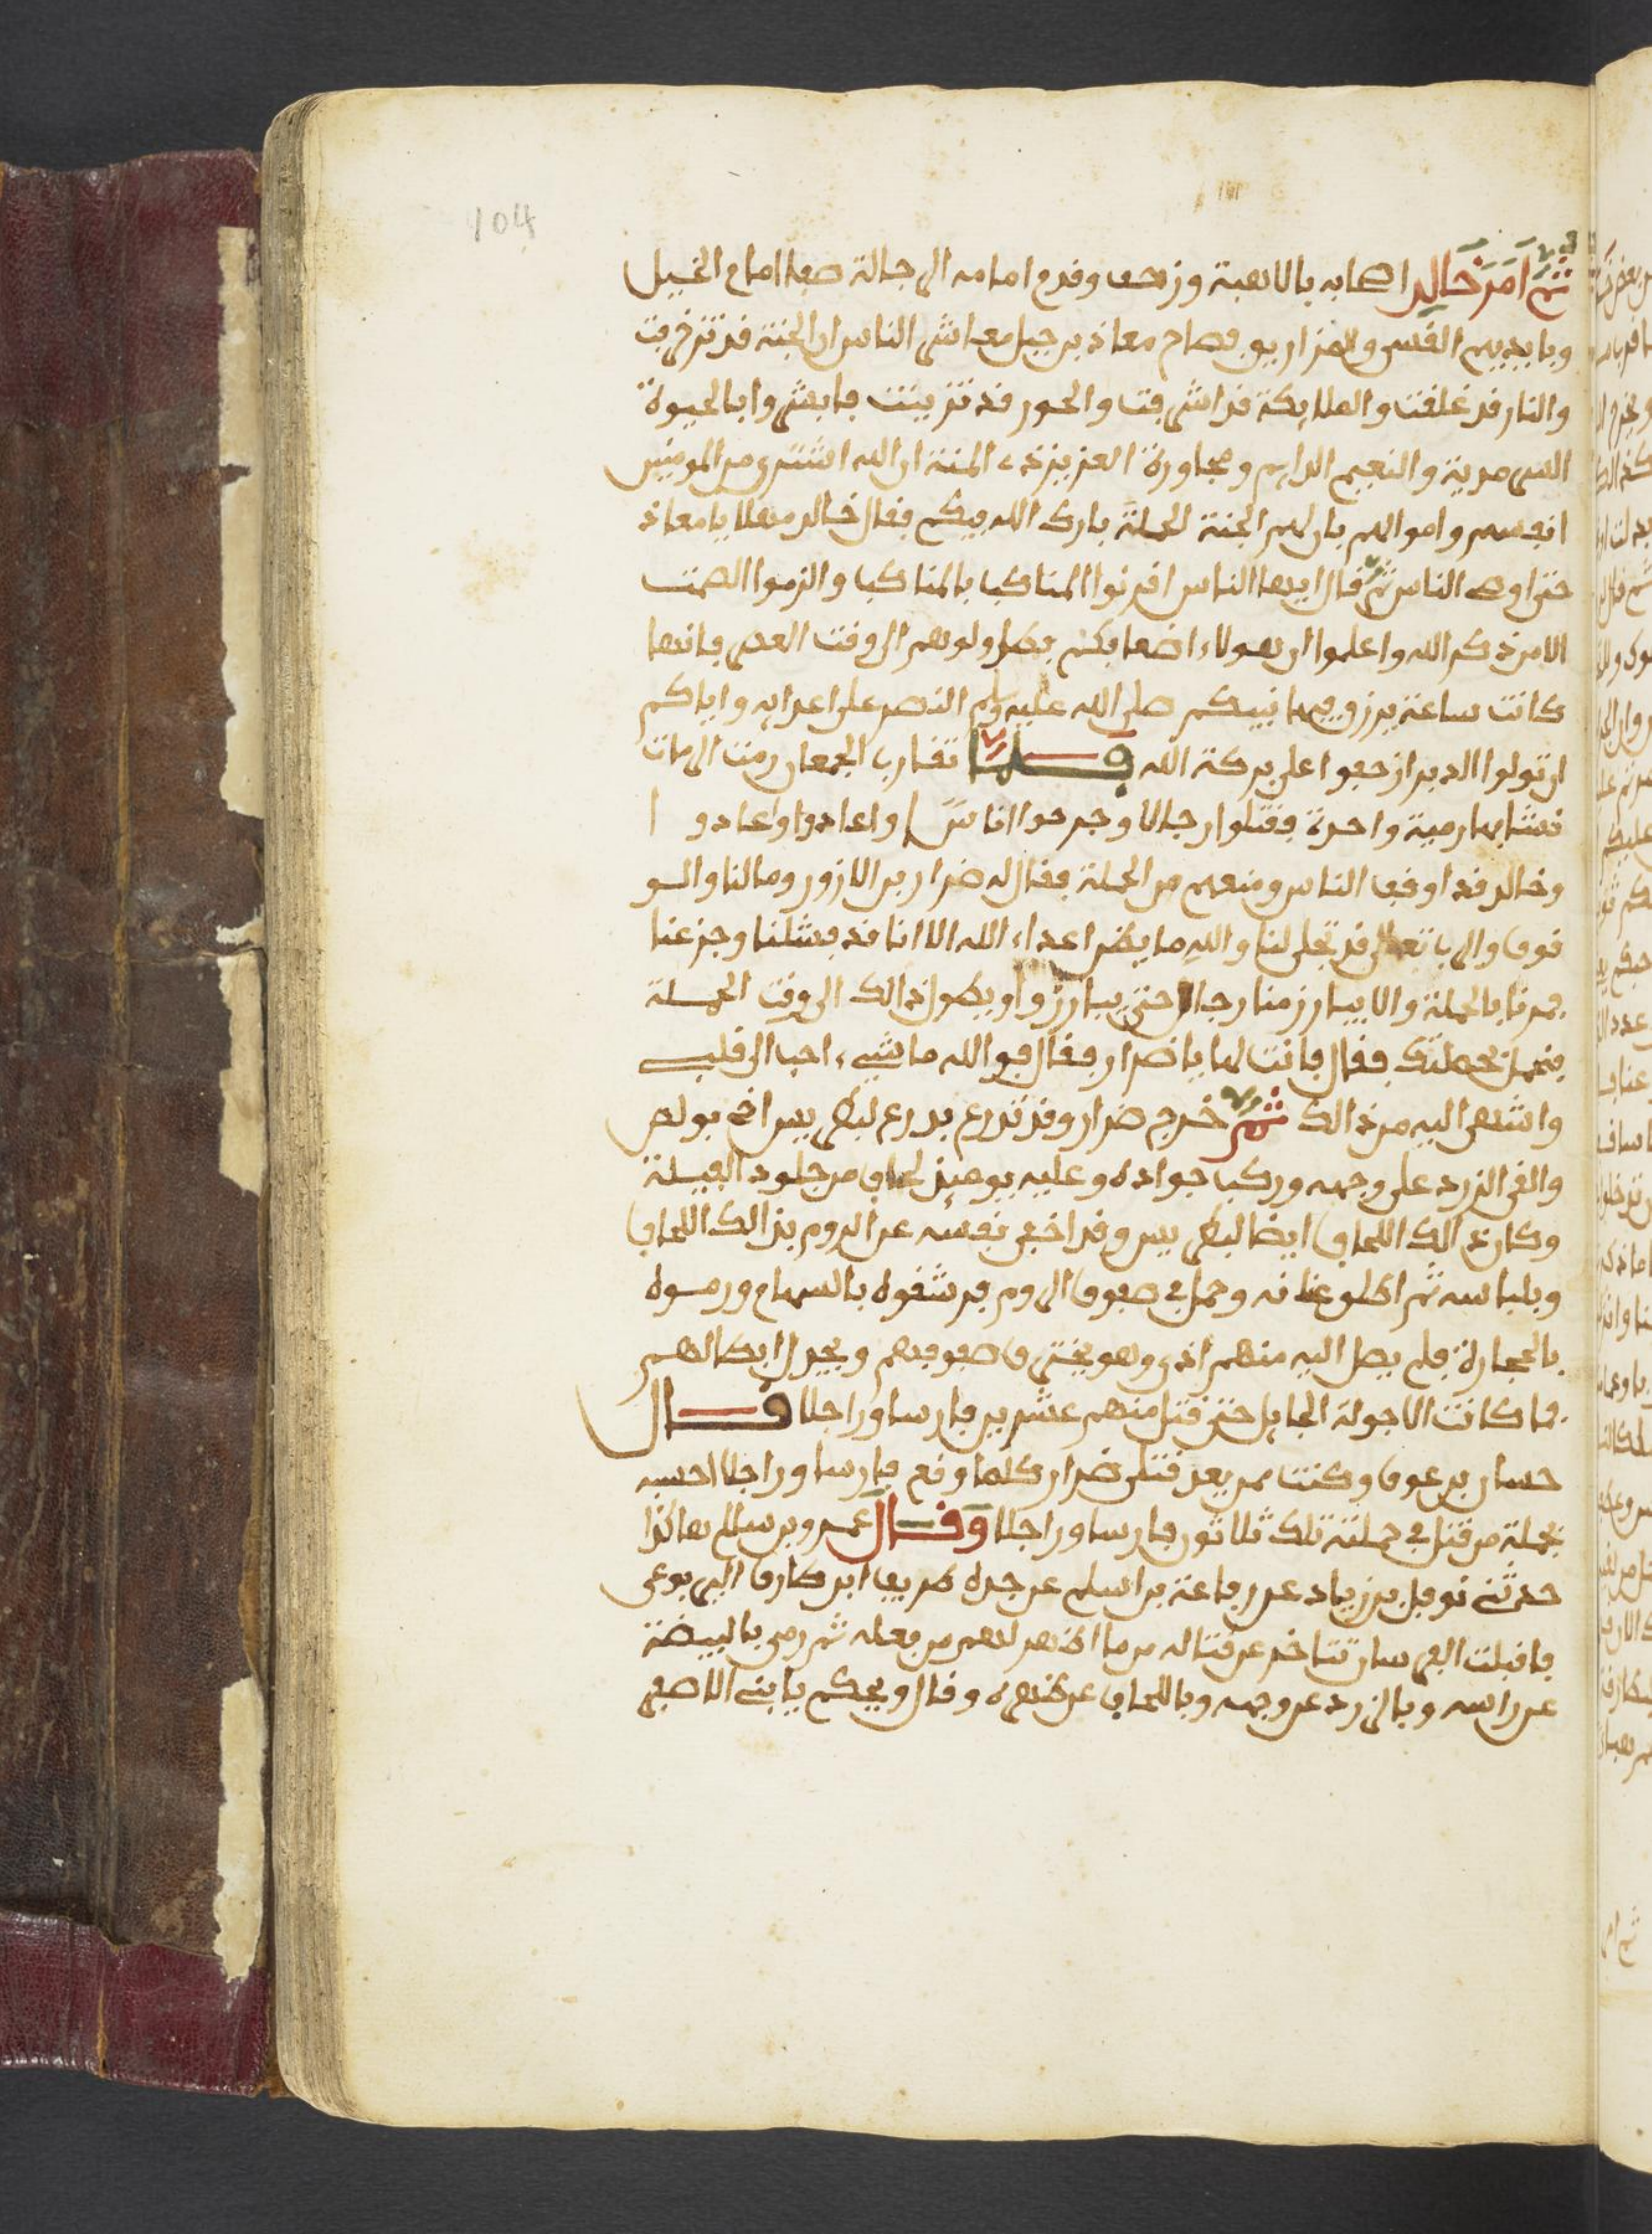 104
ثم امر خالد اصحابه بالاهبة وزحف وقدم امامه الرجالة صفا امام الخيل
وبايديهم القسي والمزاريق فصاح معاذ بن جبل معاشر الناس ان الجنة قد تزخرفت
والنار قد غلقت والملايكة قد اشرفت والحور قد تزينت فابشروا بالحيوة
السرمدية والنعيم الدايم ومجاورة العزيز ذي المنة ان الله اشترى من المومنين
انفسهم واموالهم بان لهم الجنة الحملة بارك الله فيكم فقال خالد مهلا يا معاذ
حتى اوصي الناس ثم قال ايها الناس اقرنوا المناكب بالمناكب والزموا الصمت
الا من ذكر الله واعلموا ان هولاء اضعافكم فطاولوهم الى وقت العصر فانها
كانت ساعة يرزق فيها نبيكم صلى الله عليه وسلم النصر على اعدايه واياكم
ان تولوا الدبر ازحفوا على بركة الله فلما تقارب الجمعان رمت الرماة
نشابها رمية واحدة فقتلوا رجالا وجرحوا اناسا واعادوا وعادوا
وخالد قد اوقف الناس ومنعهم من الحملة فقال له ضرار بن الازور وما لنا والوقوف
والله تعالى قد تجلى لنا والله ما يظن اعداء الله الا انا قد فشلنا وجزعنا
فمرنا بالحملة والا يبارز منا رجال حتى يبارزوا ويطول ذالك الى وقت الحملة
فنحمل بحملتك فقال فانت لها يا ضرار فقال فوالله ما شيء احب الى قلبي
واشهى اليه من ذالك ثم خرج ضرار وقد تدرع بدرع لبطريس اخي بولص
والقى الزرد على وجهه وركب جواده وعليه يوميذ لحاف من جلود الفيلة
وكان ذالك اللحاف ايضا لبطريس وقد اخفى نفسه عن الروم بذالك اللحاف
وبلباسه ثم اطلق عنانه وحمل في صفوف الروم فرشقوه بالسهام ورموه
بالحجارة فلم يصل اليه منهم اذى وهو يخترق صفوفهم ويجدل ابطالهم
فما كانت الا جولة الجايل حتى قتل منهم عشرين فارسا وراجلا قال
حسان بن عوف وكنت ممن يعد قتلى ضرار كلما وقع فارسا وراجلا احسبه
فجملة من قتل في حملته تلك ثلاثون فارسا وراجلا وقال عمرو بن سالم هاكذا
حدثني نوفل بن زياد عن رفاعة بن اسلم عن جده طريف ابن طارق اليربوعي
فاقبلت الفرسان تتاخر عن قتاله من ما اظهر لهم من فعله ثم رمى بالبيضة
عن راسه وبالزرد عن وجهه وباللحاف عن ظهره وقال ويحكم يا بني الاصفر